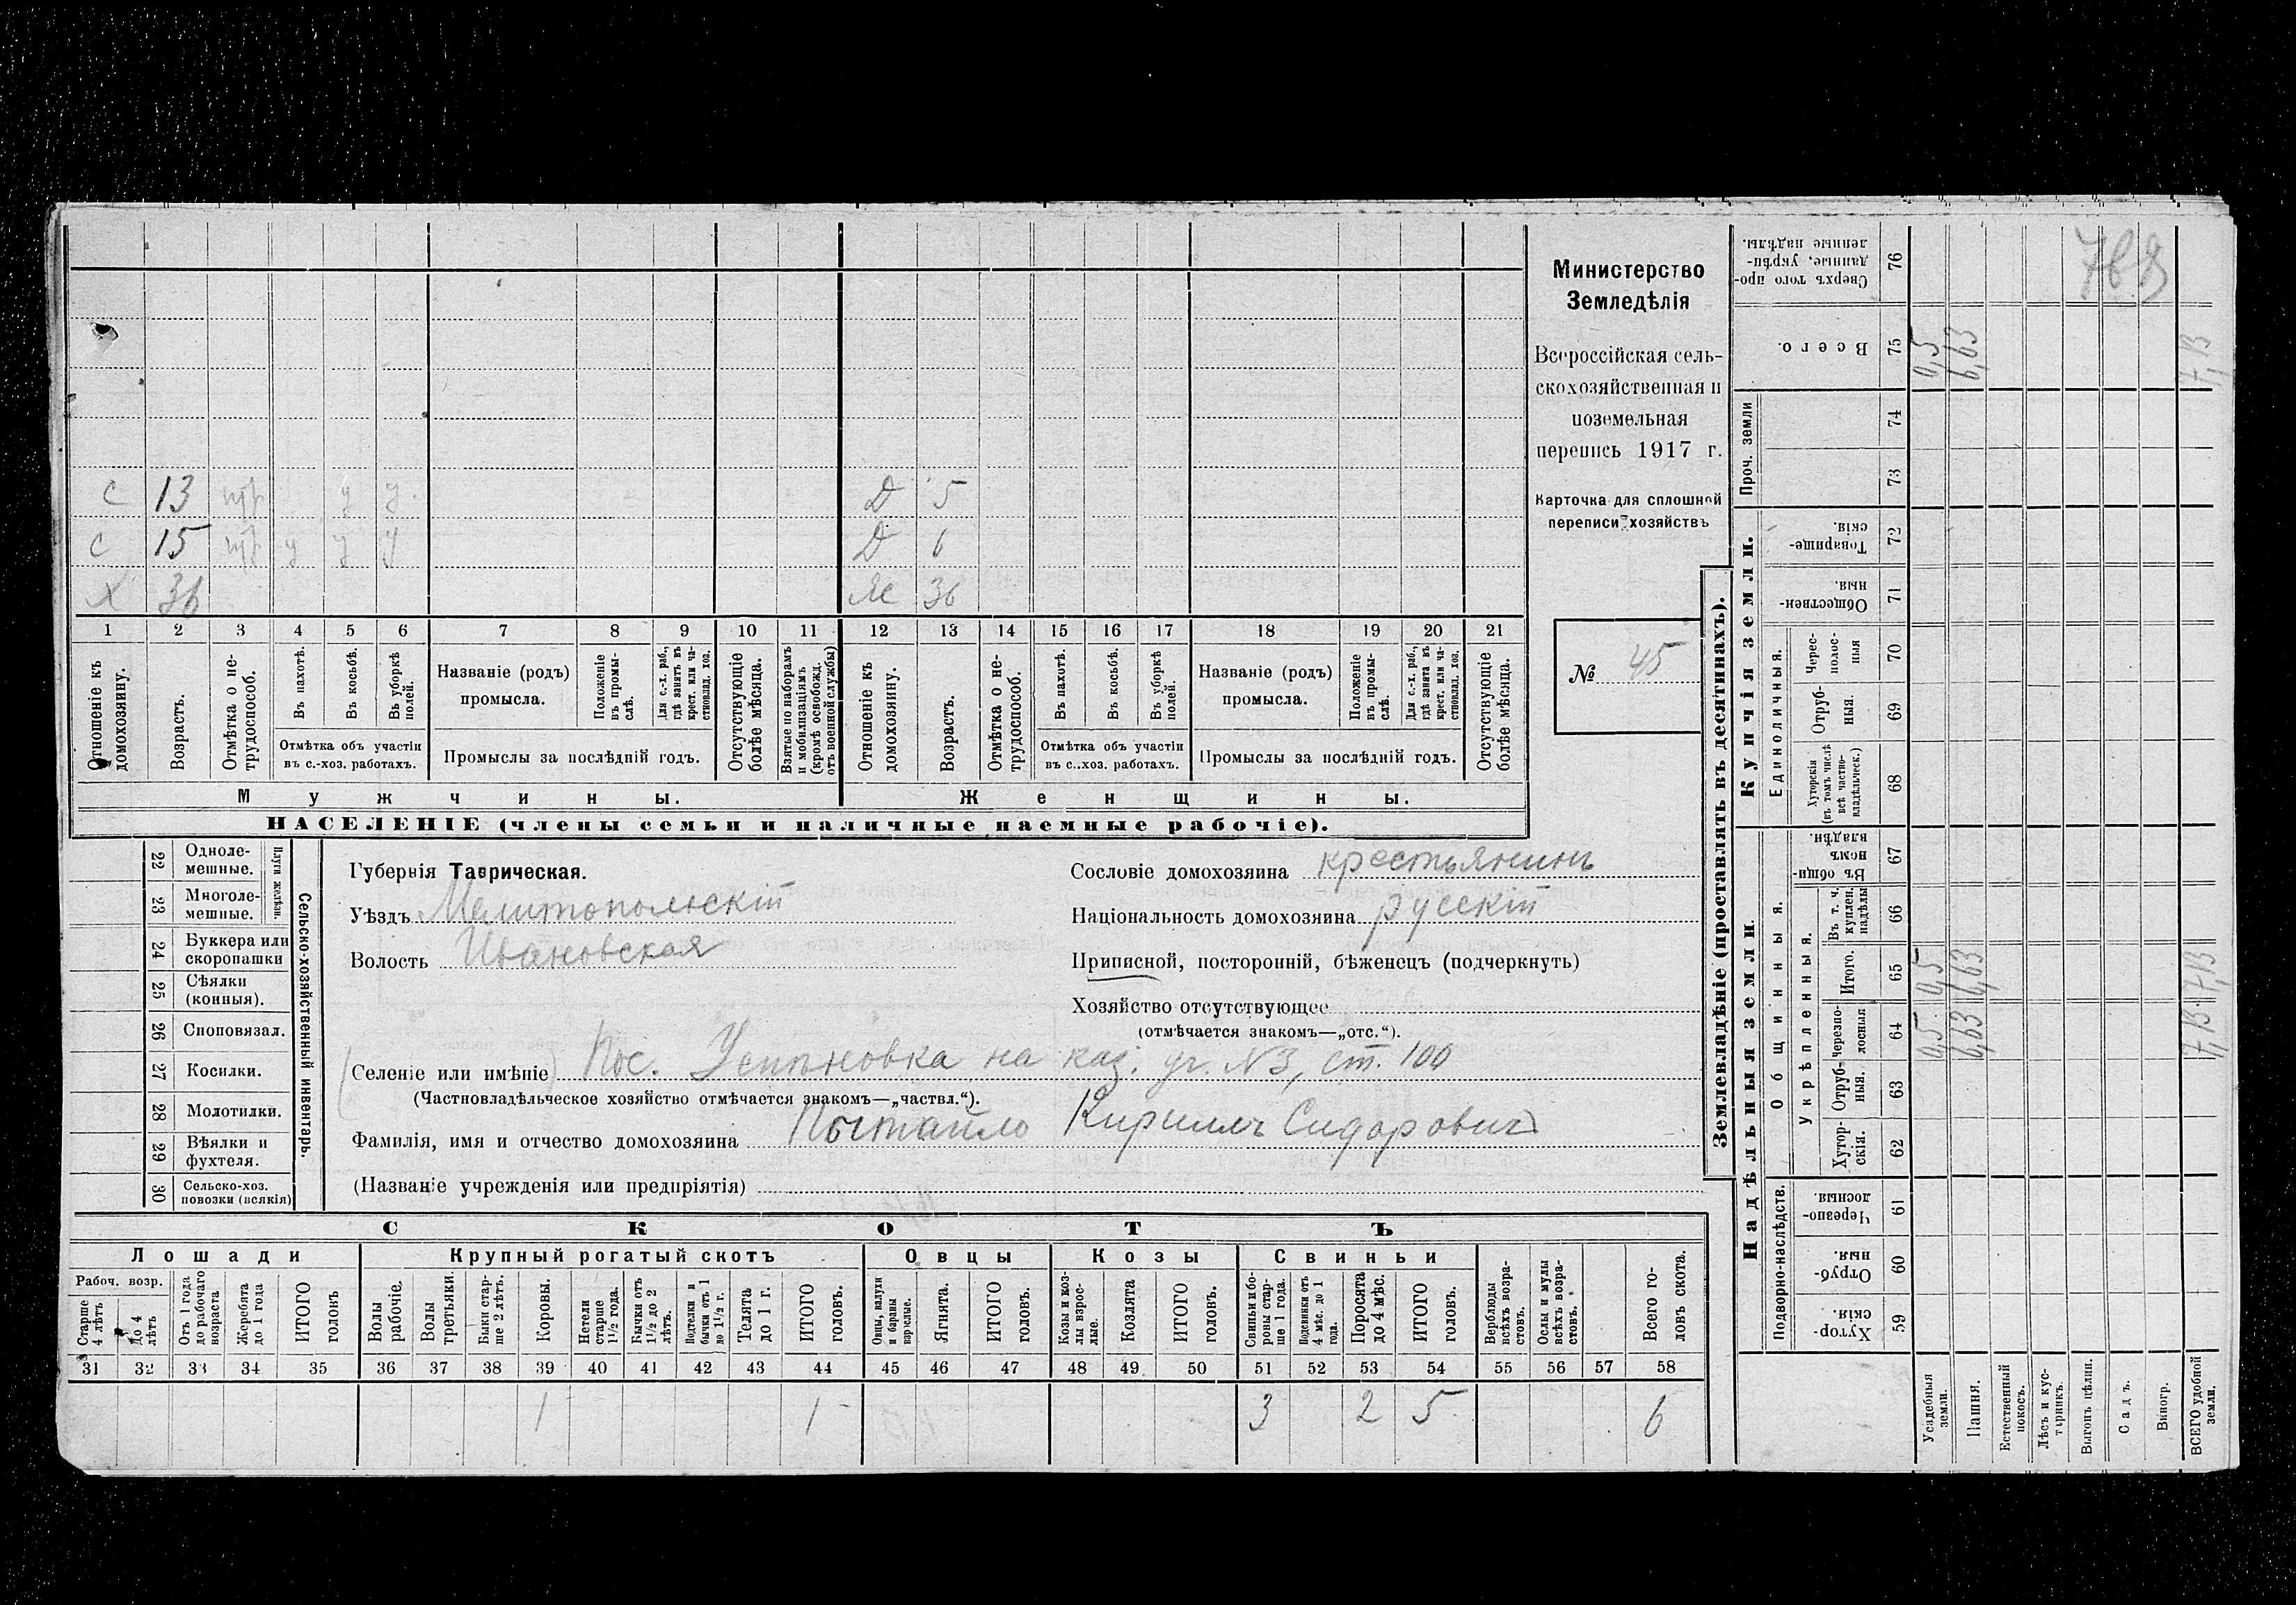 Министерство
Земледѣлія
Всероссійская сель-
скохозяйственная и
поземельная
перепись 1917 г.
Карточка для сплошной
переписи хозяйствъ
№ 45
С 13 Д 5
С 15 Д 6
Х 36 Ж 36
1 2 3 4 5 6 7 8 9 10 11 12 13 14 15 16 17 18 19 20 21
Отношеніе къ домохозяину.
Возрастъ.
Отмѣтка о не-трудоспособ.
Въ пахотѣ.
Въ косьбѣ.
Въ уборкѣ полей.
Отмѣтка объ участіи
въ с.-хоз. работахъ.
Названіе (родъ)
промысла.
Положеніе въ промы-слѣ.
Для с.-х. раб., гдѣ занятъ въ крест. или ча-стновлад. хоз.
Промыслы за послѣдній годъ.
Отсутствующіе болѣе мѣсяца.
Взятые по наборамъ и мобилизаціямъ (кромѣ освобожд. отъ военной службы)
Отношеніе къ домохозяину.
Возрастъ.
Отмѣтка о не-трудоспособ.
Въ пахотѣ.
Въ косьбѣ.
Въ уборкѣ полей.
Отмѣтка объ участіи
въ с.-хоз. работахъ.
Названіе (родъ)
промысла.
Положеніе въ промы-слѣ.
Для с.-х. раб., гдѣ занята въ крест. или ча-стновлад. хоз.
Промыслы за послѣдній годъ.
Отсутствующіе болѣе мѣсяца.
Мужчины. Женщины.
НАСЕЛЕНІЕ (члены семьи и наличные наемные рабочіе).
22 Одноле-мешные.
23 Многоле-мешные.
Плуги желѣзн.
24 Буккера или скоропашки
25 Сѣялки (конныя).
26 Сноповязал.
27 Косилки.
28 Молотилки.
29 Вѣялки и фухтеля.
30 Сельско-хоз. повозки (всякія)
Сельско-хозяйственный инвентарь.
Губернія Таврическая.
Уѣздъ Мелитопольскій
Волость Ивановская
Сословіе домохозяина крестьянинъ
Національность домохозяина русскій
Приписной, посторонній, бѣженецъ (подчеркнуть)
Хозяйство отсутствующее
(отмѣчается знакомъ—„отс.“).
Селеніе или имѣніе Пос. Успѣновка на каз. уч. N3, ст. 100
(Частновладѣльческое хозяйство отмѣчается знакомъ—„частвл.“).
Фамилія, имя и отчество домохозяина Пытайло Кириллъ Сидоровичъ
(Названіе учрежденія или предпріятія)
СКОТЪ
Лошади Крупный рогатый скотъ Овцы Козы Свиньи
Рабоч. возр.
Старше 4 лѣтъ
До 4 лѣтъ
Отъ 1 года до рабочаго возраста
Жеребята до 1 года
ИТОГО головъ
Волы рабочіе.
Волы третьяки.
Быки стар-ше 2 лѣтъ.
Коровы.
Нетели старше 1½ года.
Бычки отъ 1½ до 2 лѣтъ.
Подтелки и бычки отъ 1 до 1½ г.
Телята до 1 г.
ИТОГО головъ.
Овцы, валухи и бараны взрослые.
Ягнята.
ИТОГО головъ.
Козы и коз-лы взрос-лые.
Козлята
ИТОГО головъ.
Свиньи и бо-ровы стар-ше 1 года.
Подсвинки отъ 4 мѣс. до 1 года.
Поросята до 4 мѣс.
ИТОГО головъ.
Верблюды всѣхъ возра-стовъ.
Ослы и мулы всѣхъ возра-стовъ.
Всего го-ловъ скота.
31 32 33 34 35 36 37 38 39 40 41 42 43 44 45 46 47 48 49 50 51 52 53 54 55 56 57 58
1 1 3 2 5 6
Землевладѣніе (проставлять въ десятинахъ).
Купчія земли.
Надѣльныя земли.
Сверхъ того про-данные, укрѣп-ленные надѣлы. 76
Всего. 75 0,5 6,63 7,13
Проч. земли 74 73
Товарище-скія. 72
Обществен-ныя. 71
Единоличныя.
Черес-полос-ныя 70
Отруб-ныя. 69
Хуторскія (въ томъ числѣ всѣ частно-владѣльческ.) 68
Общинныя.
Въ общи-номъ владѣн. 67
Укрѣпленныя.
Въ т. ч. куплен. надѣлы 66
Итого. 65 0,5 6,63 7,13
Черезпо-лосныя 64 0,5 6,63 7,13
Отруб-ныя. 63
Хутор-скія. 62
Подворно-наслѣдств.
Черезпо-лосныя. 61
Отруб-ныя. 60
Хутор-скія. 59
Усадебныя земли.
Пашня.
Естественный покосъ.
Лѣсъ и кус-тарникъ.
Выгонъ цѣлин.
Садъ.
Виногр.
ВСЕГО удобной земли.